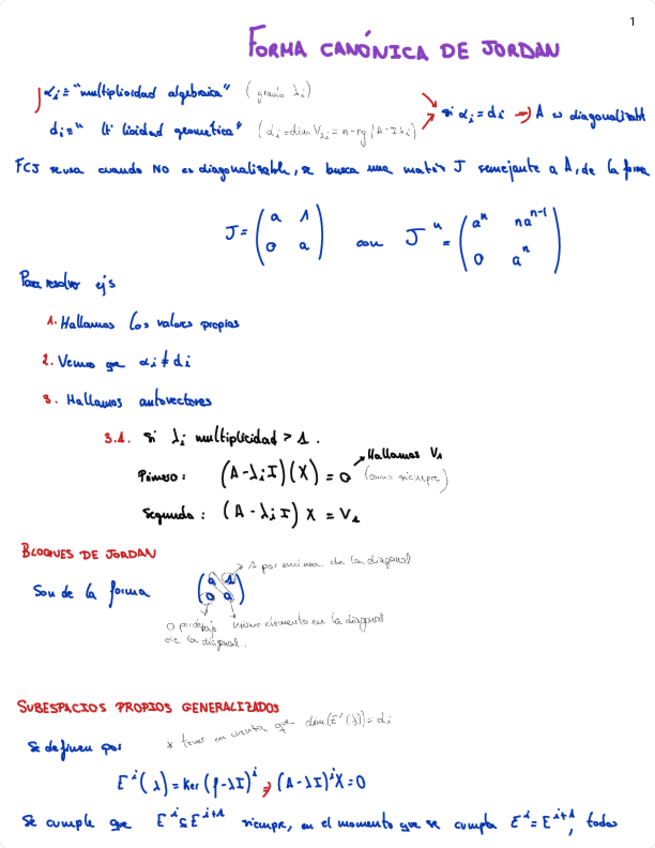 1
FORMA CANÓNICA DE JORDAN
αi = "multiplicidad algebraica" (grado λi)
di = " " licidad geometrica" (di = dim Vλi = n - rg(A - Iλi)
si αi = di ⇒ A es diagonalizabl
FCJ se usa cuando NO es diagonalizable, se busca una matriz J semejante a A, de la forma
J = (a 1
0 a) con J^n = (a^n na^n-1
0 a^n)
Para resolver ejs
1. Hallamos los valores propios
2. Vemos que αi ≠ di
3. Hallamos autovectores
3.1. si λi multiplicidad > 1.
Primero: (A - λiI)(X) = 0 Hallamos V1
(como siempre)
Segundo: (A - λiI) X = V1
BLOQUES DE JORDAN
1 por encima de la diagonal
Son de la forma (a 1
0 a)
0 por debajo
de la diagonal.
mismo elemento en la diagonal
SUBESPACIOS PROPIOS GENERALIZADOS
Se definen por * tener en cuenta que dim(E^i(λ)) = di
E^i(λ) = Ker (f - λI)^i ⇒ (A - λI)^i X = 0
Se cumple que E^i ⊆ E^i+1 siempre, en el momento que se cumpla E^i = E^i+1, todos